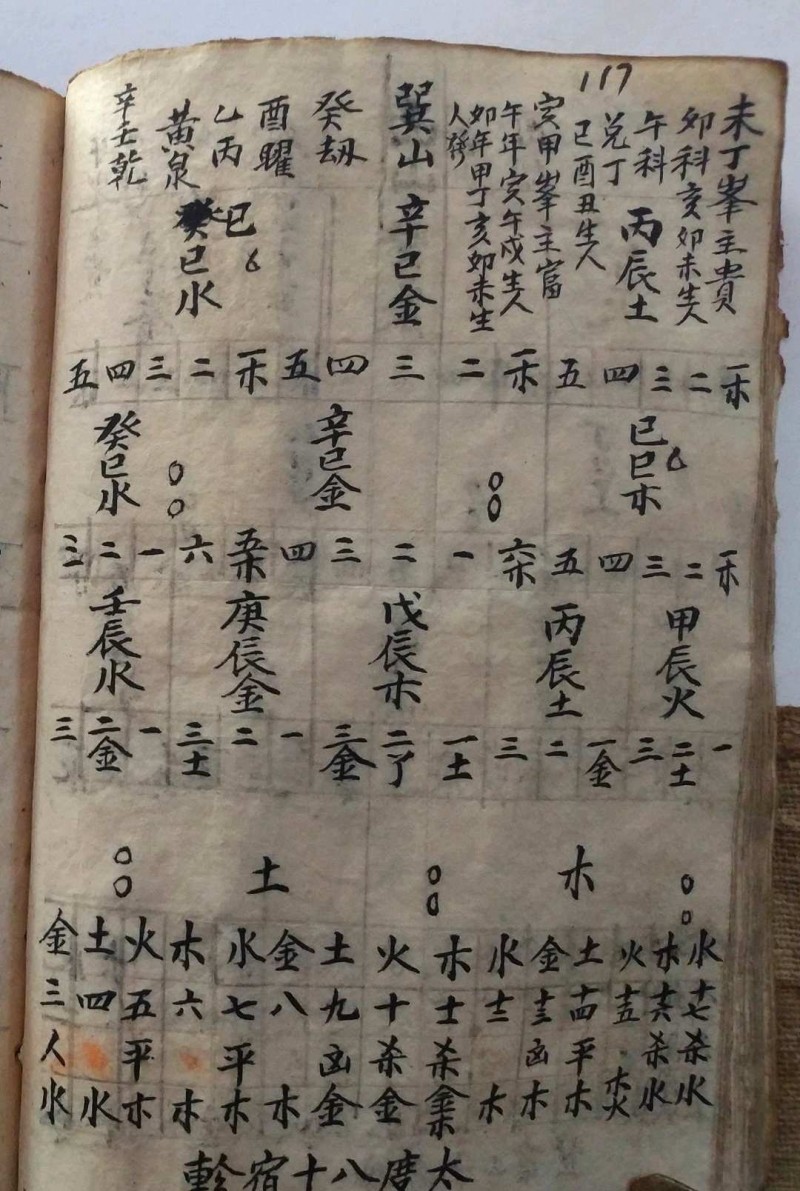 117
未丁峯主貴
卯科亥卯未生人
午科
兌丁
丙辰土
巳酉丑生人
亥甲峯主富
午年寅午戌生人
卯年甲丁亥卯未生
人發
巽山 辛巳金
癸劫
酉曜
乙丙
黃泉
巳
癸巳水
辛壬乾
一木 二 三 四 五 一木 二 三 四 五 一木 二 三 四 五
己巳木
辛巳金
癸巳水
一木 二 三 四 五 六木 一 二 三 四 五木 六 一 二 三
甲辰火
丙辰土
戊辰木
庚辰金
壬辰水
一 二土 三 一金 二 三 一土 二了 三金 一 二 三土 一 二金 三
木
土
水 木 火 土 金 水 木 火 土 金 水 木 火 土 金
十七 十六 十五 十四 十三 十二 十一 十 九 八 七 六 五 四 三
杀 杀 平 凶 杀 杀 凶 平 平 人
水 水 木火 木 木 木 金木 金 金 木 木 木 木 水 水
太度八十宿